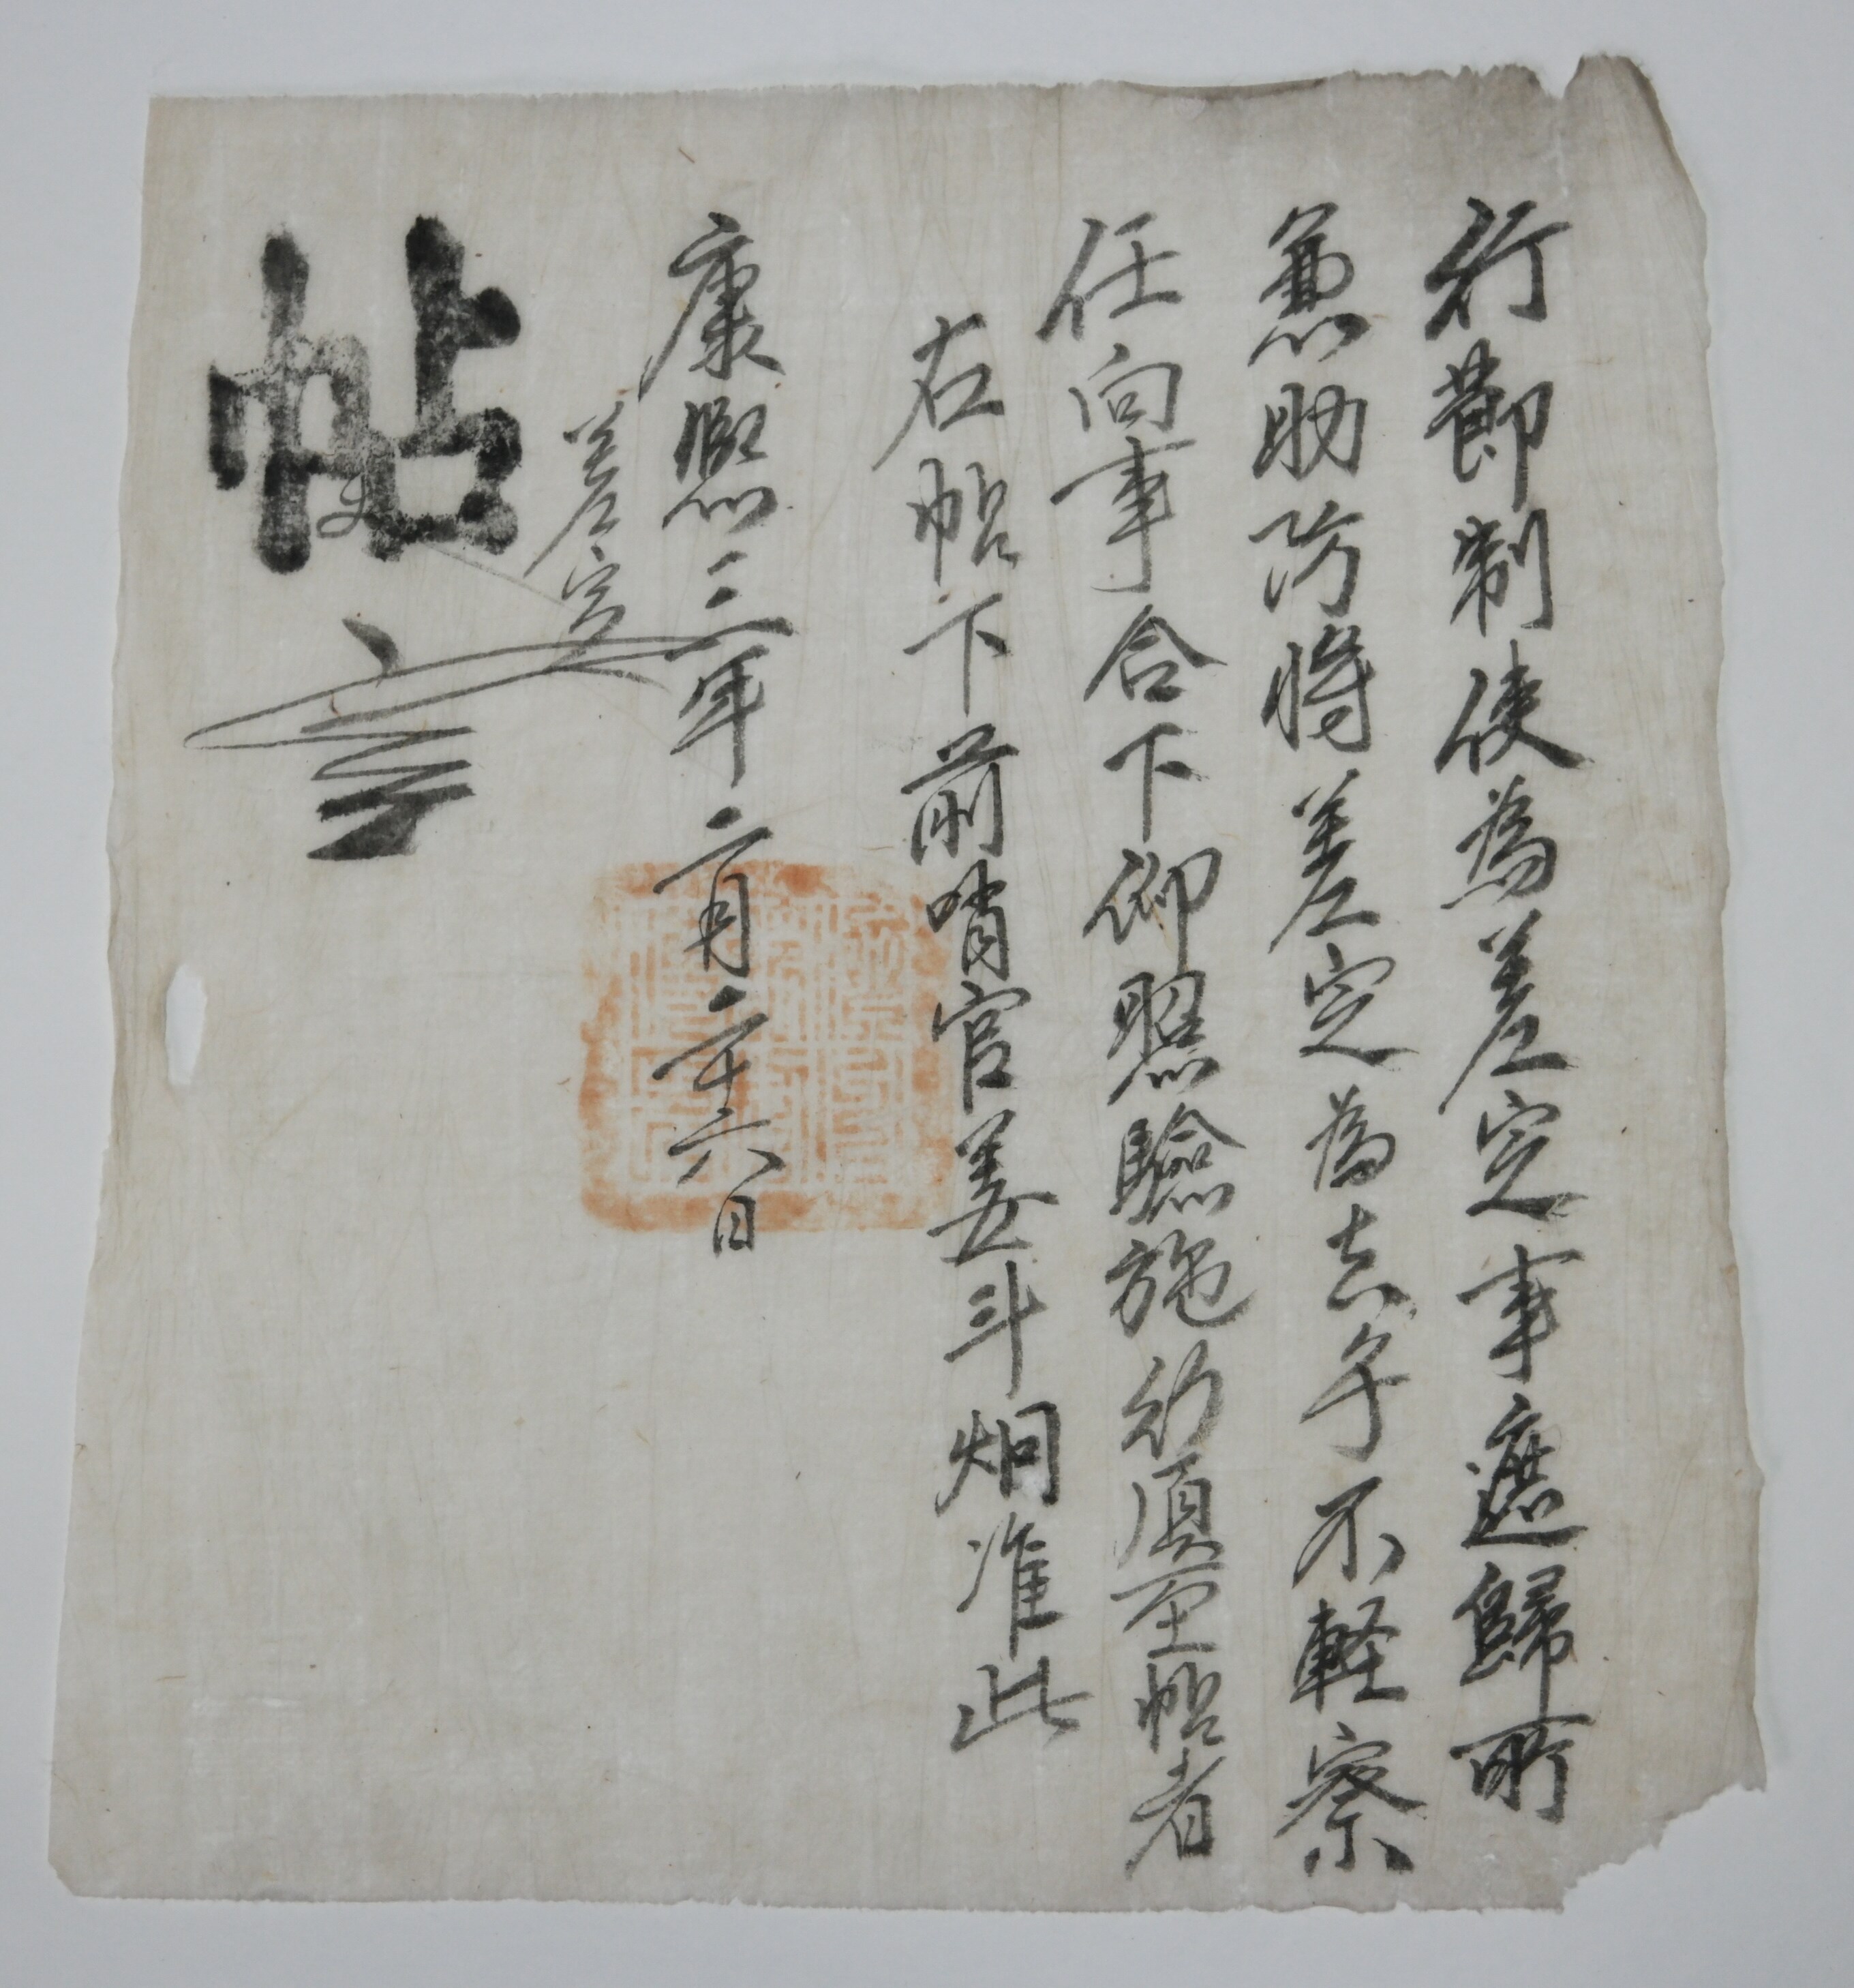 行節制使爲差定事遮歸所
兼助防將差定爲去乎不輕察
任向事合下仰照驗施行須至帖者
右帖下前哨官姜斗炯准此
康熙三年二月二十六日
差定
帖